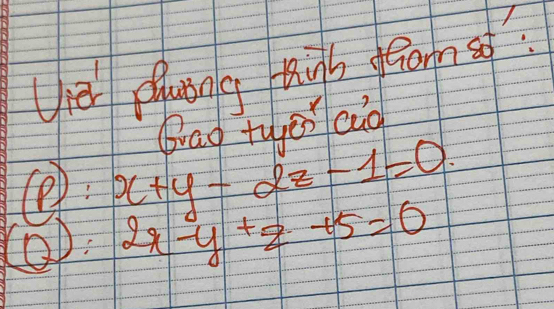 Viết phương trình tham số :
Giao tuyến của
(P) : x + y - 2z - 1 = 0.
(Q) : 2x - y + z + 5 = 0